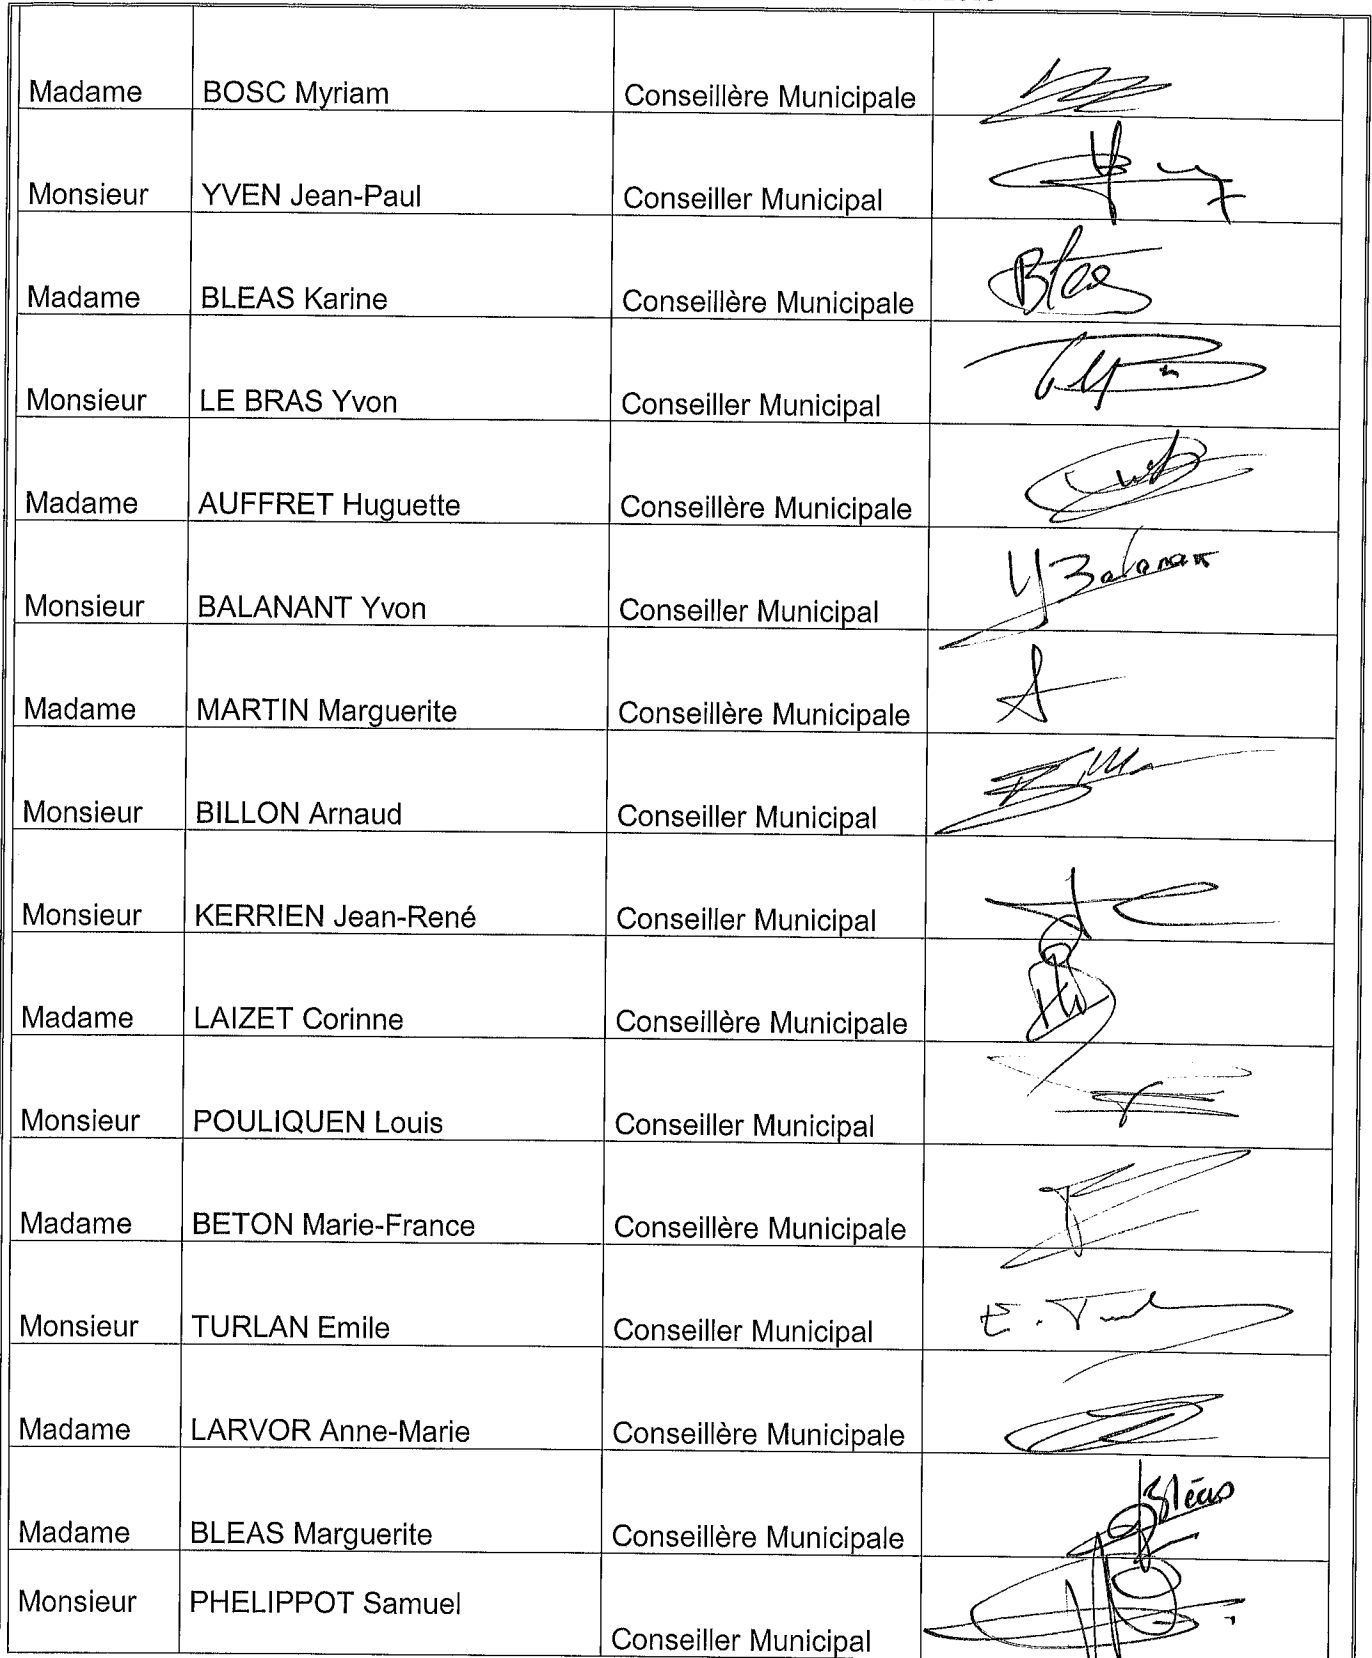 Madame BOSC Myriam Conseillère Municipale
Monsieur YVEN Jean-Paul Conseiller Municipal
Madame BLEAS Karine Conseillère Municipale Bleas
Monsieur LE BRAS Yvon Conseiller Municipal
Madame AUFFRET Huguette Conseillère Municipale
Monsieur BALANANT Yvon Conseiller Municipal Y Balanant
Madame MARTIN Marguerite Conseillère Municipale
Monsieur BILLON Arnaud Conseiller Municipal
Monsieur KERRIEN Jean-René Conseiller Municipal
Madame LAIZET Corinne Conseillère Municipale
Monsieur POULIQUEN Louis Conseiller Municipal
Madame BETON Marie-France Conseillère Municipale
Monsieur TURLAN Emile Conseiller Municipal E.
Madame LARVOR Anne-Marie Conseillère Municipale
Madame BLEAS Marguerite Conseillère Municipale Bléas
Monsieur PHELIPPOT Samuel Conseiller Municipal